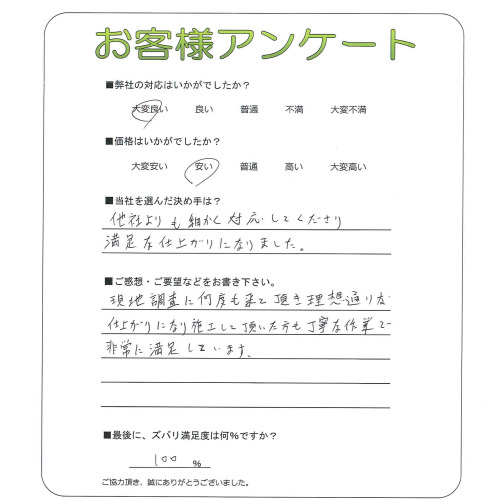 お客様アンケート
■弊社の対応はいかがでしたか？
大変良い　良い　普通　不満　大変不満
■価格はいかがでしたか？
大変安い　安い　普通　高い　大変高い
■当社を選んだ決め手は？
他社よりも細かく対応してくださり
満足な仕上がりになりました。
■ご感想・ご要望などをお書き下さい。
現地調査に何度も来て頂き理想通りな
仕上がりになり施工して頂いた方も丁寧な作業で
非常に満足しています。
■最後に、ズバリ満足度は何％ですか？
100 %
ご協力頂き、誠にありがとうございました。